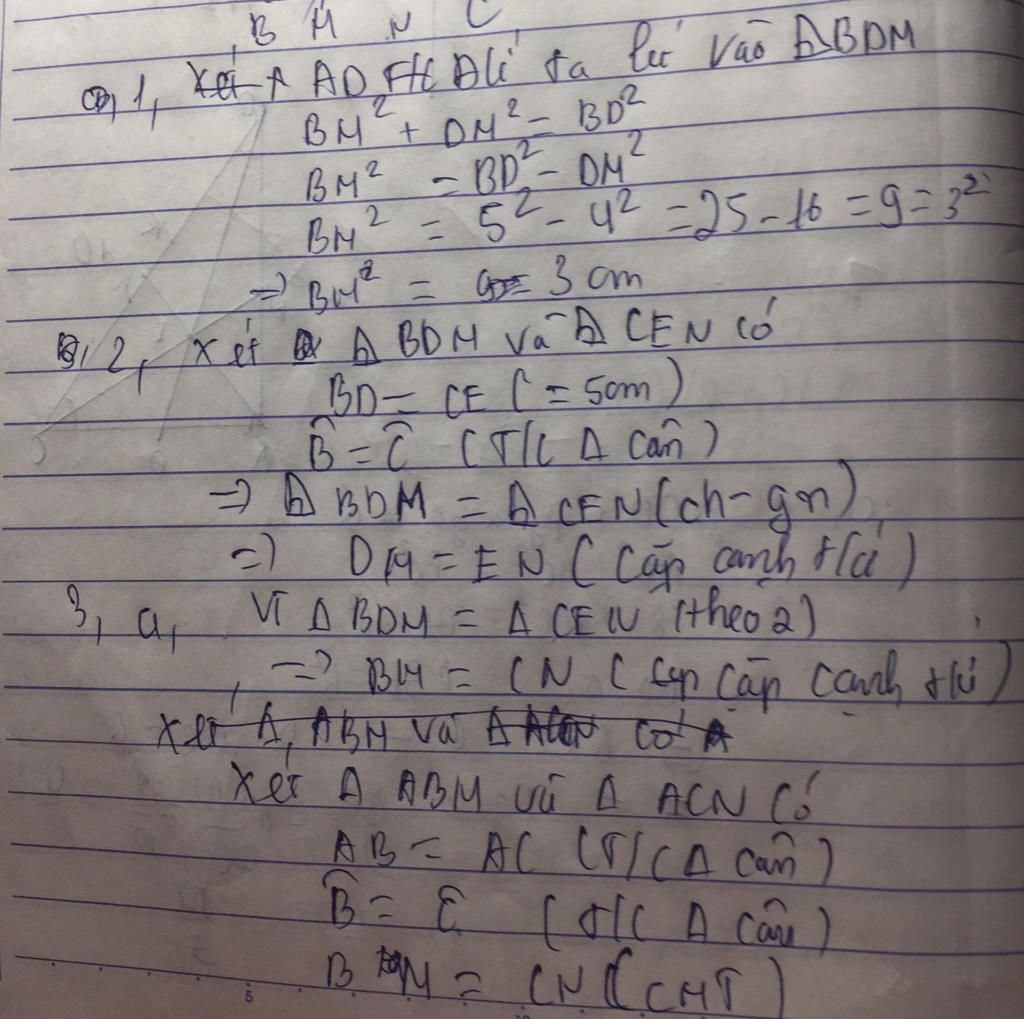 B M N C
1, Xét ADĐHC Dlí ta lư vào ΔBDM
BM² + DM² = BD²
BM² = BD² - DM²
BM² = 5² - 4² = 25 - 16 = 9 = 3²
=> BM² = 3 cm
2, Xét Δ BDM và Δ CEN có
BD = CE ( = 5cm )
B̂ = Ĉ ( T/C Δ cân )
=> Δ BDM = Δ CEN (ch - gn)
=> DM = EN ( Cặp cạnh t/ứ )
3, a, Vì Δ BDM = Δ CEN (theo 2)
=> BM = CN ( cặp cạnh t/ứ )
Xét Δ, ABM và Δ ACN có
Xét Δ ABM và Δ ACN có
AB = AC (T/C Δ cân )
B̂ = Ĉ ( t/c Δ cân )
BM = CN ( CMT )